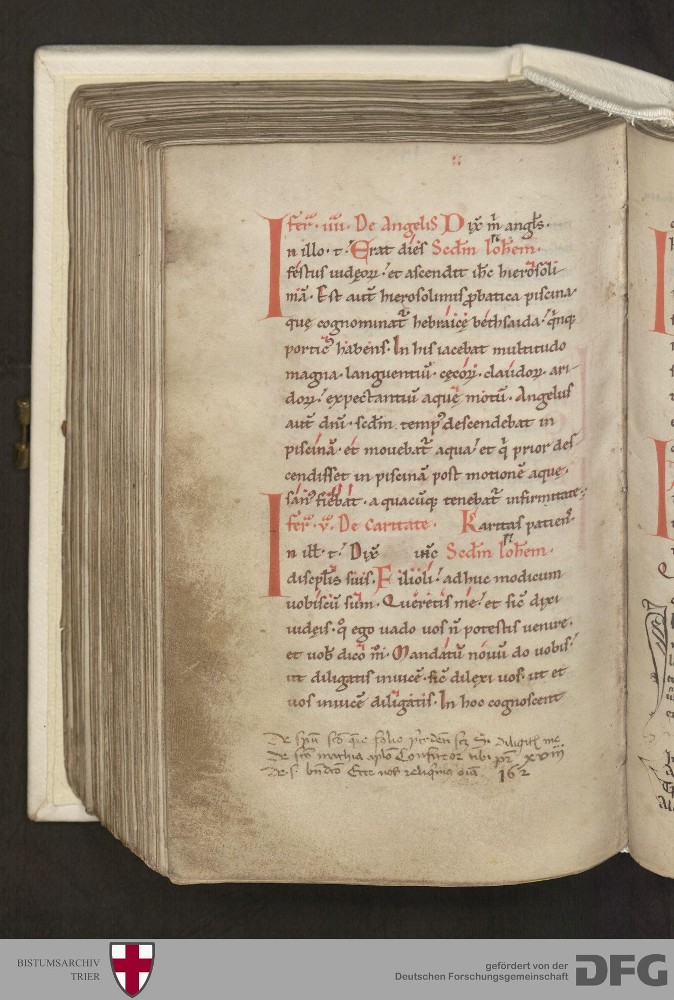 fer̄· iiii· De Angelis Dix̄ m̄ angl̄s·
In illo· t·´ Erat dies Scdm̄ Ioh̄em·
festus iudęoꝝ·´ et ascendit ih̄c hierosoli
mā· Est aut̄ hierosolimis ꝓbatica piscina
quę cognominat᷑ hebraicę bethsaida·´ q̄nq;
portic᷒ habens· In his iacebat multitudo
magna· languentiū· cęcoꝝ· claudoꝝ· ari
doꝝ·´ expectantiū aquę motū· Angelus
aut̄ dn̄i· scdm̄· temp᷒ descendebat in
piscinā· et mouebat᷑ aqua·´ et q̄ prior des
cendisset in piscinā post motionē aquę·
san᷒ fiebat· a quacūq; tenebat᷑ infirmitate·
fer̄· v· De caritate· Karitas patien᷒·
In ill̄· t·´ Dix̄ ih̄c Scdm̄ Ioh̄em·
discipl̄is suis· Filioli·´ adhuc modicum
uobiscū sum· Queretis me·´ et sic̄ dixi
iudęis· q̊ ego uado uos n̄ potestis uenire·
et uob̄ dico m̊· Mandatū nouū do uobis·´
ut diligatis inuicē· sic̄ dilexi uos· ut et
uos inuicē diligatis· In hoc cognoscent
De sc̄o mathia aplo Confiteor tibi pr̄ xviii
De s· bn̄dco Ecce nos reliq̄mus oīa 162
BISTUMSARCHIV
TRIER
gefördert von der
Deutschen Forschungsgemeinschaft
DFG